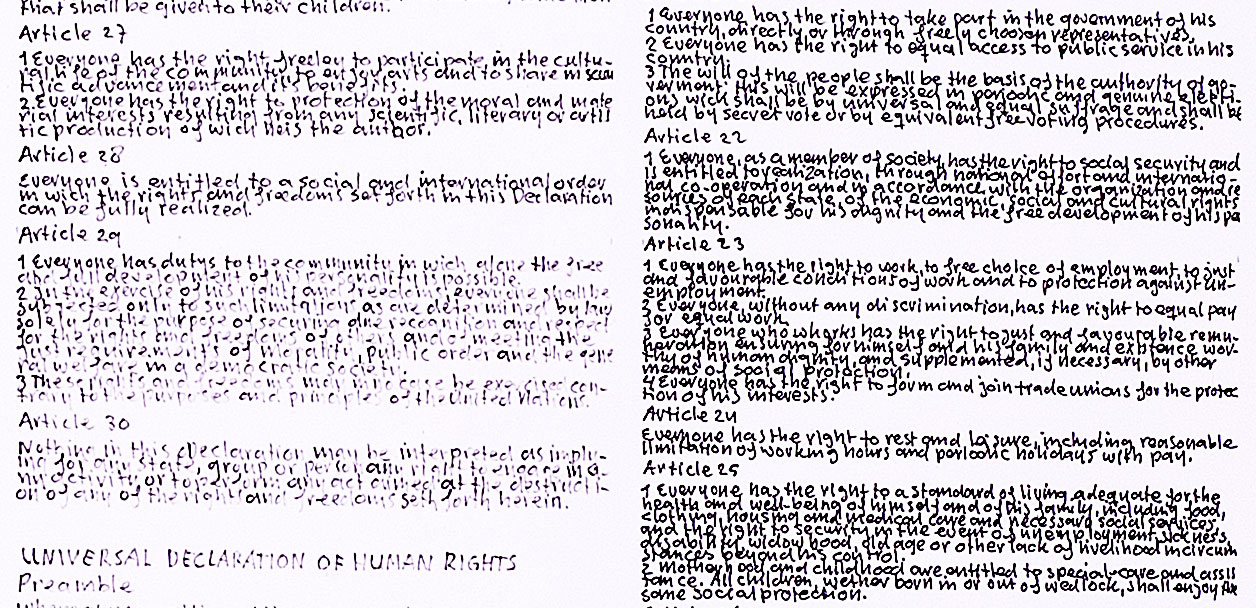 that shall be given to their children.
Article 27
1 Everyone has the right freeley to participate in the cultu-
ral life of the community, to enjoy arts and to share in scien
tific advancement and its benefits.
2 Everyone has the right to protection of the moral and mate
rial interests resulting from any scientific, literary or artis
tic production of wich he is the author.
Article 28
Everyone is entitled to a social and international order
in wich the rights and freedoms set forth in this Declaration
can be fully realized.
Article 29
1 Everyone has dutys to the community in wich alone the free
and full development of his personality is possible.
2 In the exercise of his rights and freedoms, everyone shall be
subjected only to such limitations as are determined by law
solely for the purpose of securing due recognition and respect
for the rights and freedoms of others and of meeting the
just requirements of morality, public order and the gene
ral welfare in a democratic society.
3 These rights and freedoms may in no case be exercised con-
trary to the purposes and principles of the United Nations.
Article 30
Nothing in this Declaration may be interpreted as imply-
ing for any state, group or person any right to engage in a-
ny activity or to perform any act aimed at the destructi-
on of any of the rights and freedoms seth forth herein.
UNIVERSAL DECLARATION OF HUMAN RIGHTS
Preamble
1 Everyone has the right to take part in the government of his
country, directly or through freely choosen representatives.
2 Everyone has the right to equal access to public service in his
country.
3 The will of the people shall be the basis of the authority of go-
verment: this will be expressed in periodic and genuine elekti-
ons wich shall be by universal and equal suffrage and shall be
held by secret vote or by equivalent free voting procedures.
Article 22
1 Everyone, as a member of society, has the right to social security and
is entitled to realization, through national effort and internatio-
nal co-operation and in accordance with the organization and re
sources of each state, of the economic, social and cultural rights
indispensable for his dignity and the free development of his pe
sonality.
Article 23
1 Everyone has the right to work, to free choice of employment, to just
and favourable conditions of work and to protection against un-
employment.
2 Everyone without any discrimination, has the right to equal pay
for equal work.
3 Everyone who whorks has the right to just and favourable remu-
neration ensuring for himself and his family and existence wor-
thy of human dignity, and supplemented, if necessary, by other
means of social protection.
4 Everyone has the right to form and join trade unions for the protec
tion of his interests.
Article 24
Everyone has the right to rest and leisure, including reasonable
limitation of working hours and periodic holidays with pay.
Article 25
1 Everyone has the right to a standard of living adequate for the
health and well-being of himself and of his family, including food,
clothing, housing and medical care and necessary social services,
and the right to security in the event of unemployment, sickness,
disability, widowhood, old age or other lack of livelihood in circum
stances beyond his control.
2 Motherhood and childhood are entitled to special care and assis
tance. All children, wether born in or out of wedlock, shall enjoy the
same social protection.